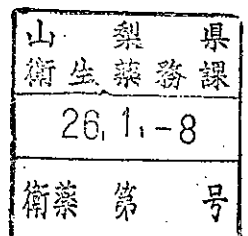 山梨県
衛生薬務課
26.1.-8
衛薬第 号